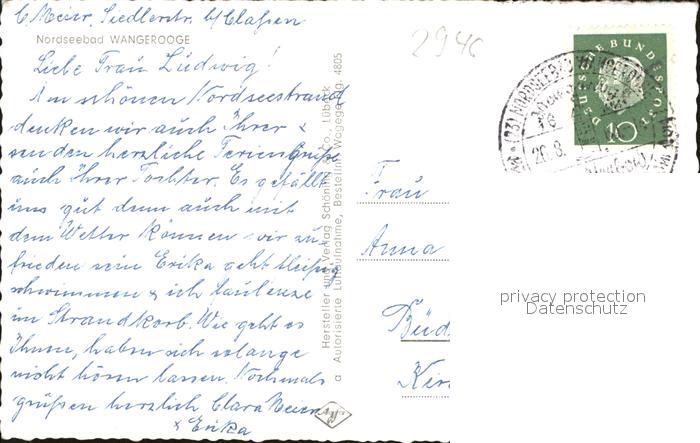 C. Meier, Siedlerstr. b/Claßen
Nordseebad WANGEROOGE
Liebe Frau Ludwig!
Am schönen Nordseestrand
denken wir auch Ihrer &
senden herzliche Feriengrüße
auch Ihrer Tochter. Es gefällt
uns gut denn auch mit
dem Wetter können wir zu-
frieden sein Erika geht fleißig
schwimmen & ich faulenze
im Strandkorb. Wie geht es
Ihnen, haben sich solange
nicht hören lassen. Nochmals
grüßen herzlich Clara Meier
& Erika
Hersteller und Verlag Schöning & Co., Lübeck
Autorisierte Luftaufnahme, Bestell-Nr. Wogege Lg. 4805
2946
DEUTSCHE BUNDESPOST
10
(23) NORDSEEBAD WANGEROOGE
26.8.
Frau
Anna
Büd
Kir
privacy protection
Datenschutz